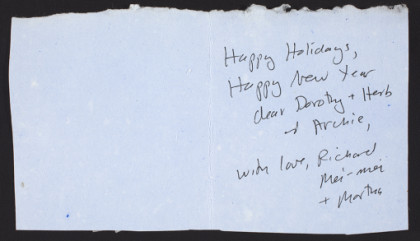 Happy Holidays,
Happy New Year
dear Dorothy + Herb
+ Archie,
with love, Richard
Mei-mei
+ Martha